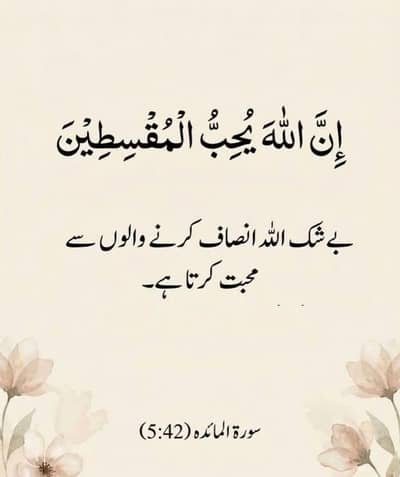 إِنَّ اللّٰهَ يُحِبُّ الْمُقْسِطِيْنَ
بے شک اللہ انصاف کرنے والوں سے
محبت کرتا ہے۔
سورۃ المائدہ (5:42)